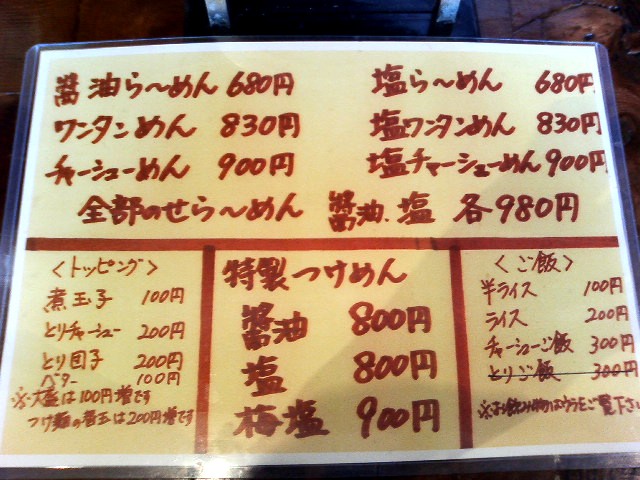 醤油ら〜めん 680円 塩ら〜めん 680円
ワンタンめん 830円 塩ワンタンめん 830円
チャーシューめん 900円 塩チャーシューめん 900円
全部のせら〜めん 醤油、塩 各980円
<トッピング>
煮玉子 100円
とりチャーシュー 200円
とり団子 200円
バター 100円
※大盛は100円増です
つけ麺の替玉は200円増です
特製つけめん
醤油 800円
塩 800円
梅塩 900円
<ご飯>
半ライス 100円
ライス 200円
チャーシューご飯 300円
とりご飯 300円
※お飲み物はウラをご覧下さい